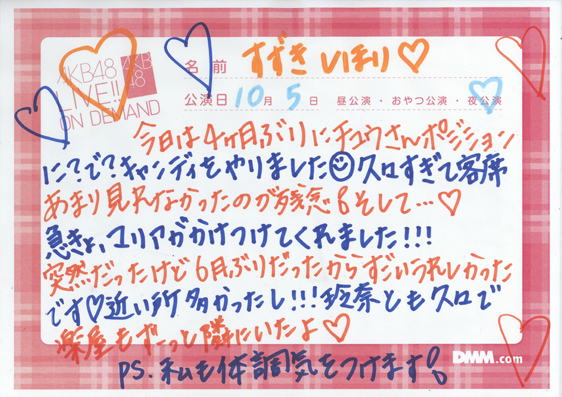 AKB48
LIVE!!
ON DEMAND
AKB
48
名前 すずき しほり♡
公演日 10月 5日 昼公演・おやつ公演・夜公演
今日は4ヶ月ぶりにチュウさんポジション
に?で?キャンディをやりました☺久々すぎて客席
あまり見れなかったのが残念 そして…♡
急きょ、マリアがかけつけてくれました!!!
突然だったけど6月ぶりだったからすごいうれしかった
です♡近い所多かったし!!!玲奈とも久々で
楽屋もずーっと隣にいたよ♡
PS. 私も体調気をつけます!
DMM.com